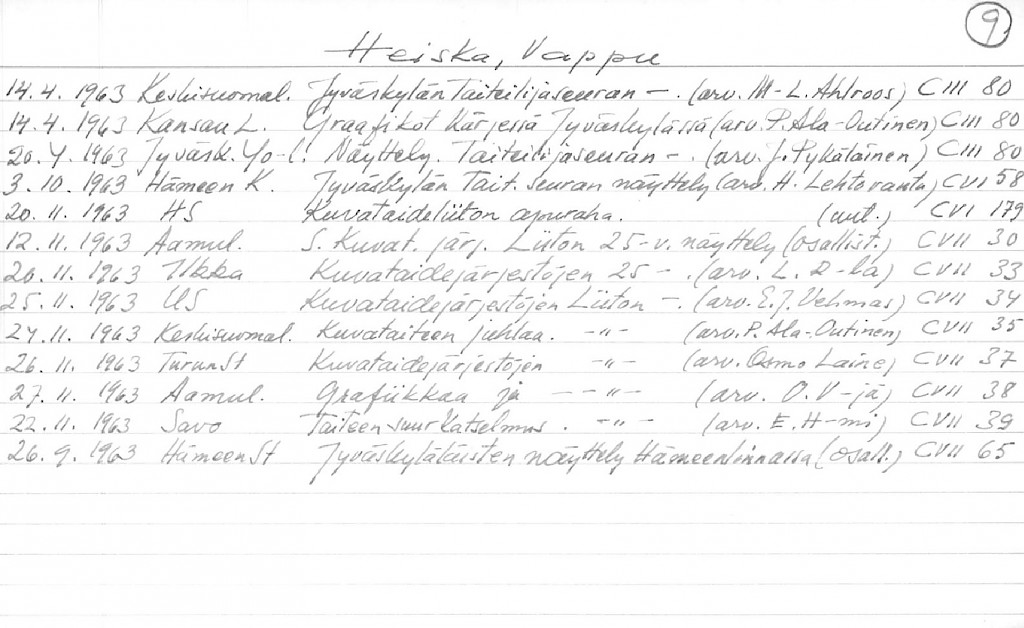 9
Heiska, Vappu
14.4. 1963 Keskisuomal. Jyväskylän Taiteilijaseuran -. (arv. M-L. Ahlroos) CIII 80
14.4. 1963 Kansan L. Graafikot kärjessä Jyväskylässä (arv. P. Ala-Outinen) CIII 80
20.4. 1963 Jyväsk. Yo-l. Näyttely. Taiteilijaseuran -. (arv. J. Pykäläinen) CIII 80
3.10. 1963 Hämeen K. Jyväskylän Tait. seuran näyttely (arv. H. Lehtovanta) CVI 58
20.11. 1963 HS Kuvataideliiton apuraha. (uut.) CVI 179
12.11. 1963 Aamul. S. Kuvat. järj. Liiton 25-v. näyttely (osallist.) CVII 30
20.11. 1963 Ilkka Kuvataidejärjestöjen 25 -. (arv. L. R-la) CVII 33
25.11. 1963 US Kuvataidejärjestöjen Liiton -. (arv. E.J. Vehmas) CVII 34
24.11. 1963 Keskisuomal. Kuvataiteen juhlaa. -"- (arv. P. Ala-Outinen) CVII 35
26.11. 1963 TurunSt Kuvataidejärjestöjen -"- (arv. Osmo Laine) CVII 37
27.11. 1963 Aamul. Grafiikkaa ja - -"- (arv. O.V-jä) CVII 38
22.11. 1963 Savo Taiteen suurkatselmus. -"- (arv. E. H-mi) CVII 39
26.9. 1963 HämeenSt Jyväskyläläisten näyttely Hämeenlinnassa (osall.) CVII 65